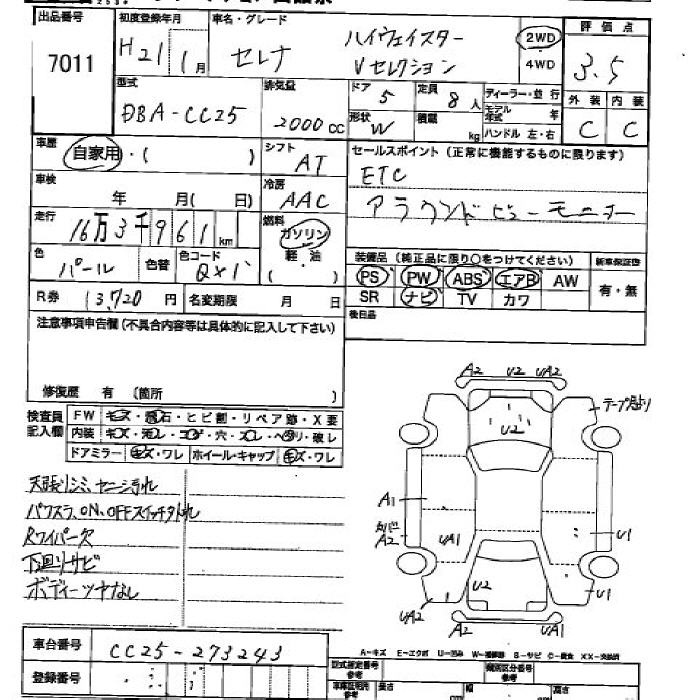 出品番号 初度登録年月 車名・グレード 評価点
7011 H21 1月 セレナ ハイウェイスター Vセレクション 2WD 4WD 3.5
型式 排気量 ドア 5 定員 8人 ディーラー・並行 外装 内装
DBA-CC25 2000cc 形状 W 積載 kg モデル年式 年 ハンドル 左・右 C C
車歴 自家用・( ) シフト AT セールスポイント(正常に機能するものに限ります)
車検 年 月( 日) 冷房 AAC ETC
走行 16万3千961km 燃料 ガソリン アラウンドビューモニター
色 パール 色替 色コード QX1 軽・油 ( ) 装備品(純正品に限り○をつけてください) 新車保証書
PS PW ABS エアB AW 有・無
R券 13,720円 名変期限 月 日 SR ナビ TV カワ
注意事項申告欄(不具合内容等は具体的に記入して下さい) 後日品
修復歴 有 (箇所 )
検査員記入欄 FW キズ・飛石・ヒビ割・リペア跡・X要
内装 キズ・汚レ・コゲ・穴・スレ・ヘタリ・破レ
ドアミラー キズ・ワレ ホイール・キャップ キズ・ワレ
天張りシミ、ヤニ汚れ
パワスラ、ON、OFFスイッチ外れ
Rワイパー欠
下回りサビ
ボディーツヤなし
A2 U2 UA2
テープ貼り
U2
A1
カバー
A2
UA1
U1
U2
U1
UA2
A2 UA1
車台番号 CC25-273243
A-キズ E-エクボ U-凹み W-補修跡 S-サビ C-腐食 XX-交換済
登録番号
型式指定番号 参考 類別区分番号 参考
車庫証明用 参考 長さ 幅 高さ